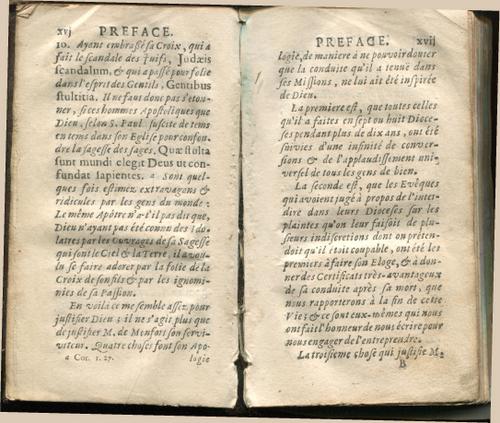 xvj PREFACE.
10. Ayant embrassé sa Croix, qui a
fait le scandale des Juifs, Judæis
scandalum, & qui a passé pour folie
dans l'esprit des Gentils, Gentibus
stultitia. Il ne faut donc pas s'eton-
ner, si ces hommes Apostoliques que
Dieu, selon S. Paul suscite de tems
en tems dans son Eglise pour confon-
dre la sagesse des sages, Quæ stulta
sunt mundi elegit Deus ut con-
fundat sapientes. a Sont quel-
ques fois estimez extravagans &
ridicules par les gens du monde :
Le même Apôtre n'a-t'il pas dit que,
Dieu n'ayant pas été connu des ido-
latres par les Ouvrages de sa Sagesse
qui sont le Ciel & la Terre, il a vou-
lu se faire adorer par la folie de la
Croix de son fils & par les ignomi-
nies de sa Passion.
En voilà ce me semble assez pour
justifier Dieu ; il ne s'agit plus que
de justifier M. de Monfort son servi-
viteur. Quatre choses font son Apo-
a Cor. 1. 27. logie
PREFACE. xvij
logie, de maniere à ne pouvoir douter
que la conduite qu'il a tenuë dans
ses Missions, ne lui ait été inspirée
de Dieu.
La premiere est, que toutes celles
qu'il a faites en sept ou huit Dioce-
ses pendant plus de dix ans, ont été
suivies d'une infinité de conver-
sions & de l'applaudissement uni-
versel de tous les gens de bien.
La seconde est, que les Evêques
qui avoient jugé à propos de l'inter-
dire dans leurs Dioceses sur les
plaintes qu'on leur faisoit de plu-
sieurs indiscretions dont on préten-
doit qu'il étoit coupable, ont été les
premiers à faire son Eloge, & à don-
ner des Certificats très-avantageux
de sa conduite après sa mort, que
nous rapporterons à la fin de cette
Vie ; & ce sont eux-mêmes qui nous
ont fait l'honneur de nous écrire pour
nous engager de l'entreprendre.
La troisieme chose qui justifie M.
B